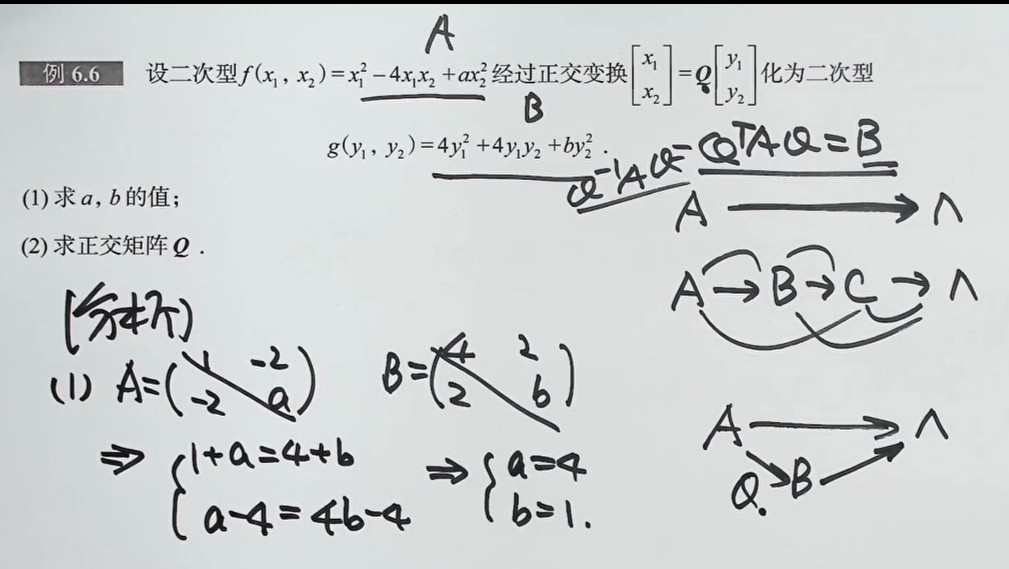 例 6.6 设二次型f(x₁, x₂)=x₁²−4x₁x₂+ax₂²经过正交变换[x₁ x₂]=Q[y₁ y₂]化为二次型
A
B
g(y₁, y₂)=4y₁²+4y₁y₂+by₂².
Q⁻¹AQ=QᵀAQ=B
(1) 求 a, b 的值;
A → Λ
(2) 求正交矩阵 Q .
A → B → C → Λ
[分析]
(1) A=(1 -2 -2 a) B=(4 2 2 b)
A → Λ
Q B
⇒ {1+a=4+b ⇒ {a=4
a-4=4b-4 b=1.